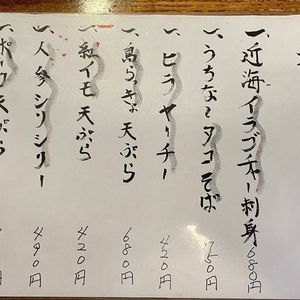 一、近海イラブチャー刺身 680円
一、うちなータコそば 750円
一、ヒラヤーチー 420円
一、島らっきょ天ぷら 680円
一、紅イモ天ぷら 420円
一、人参シリシリー 490円
一、ポーク天ぷら